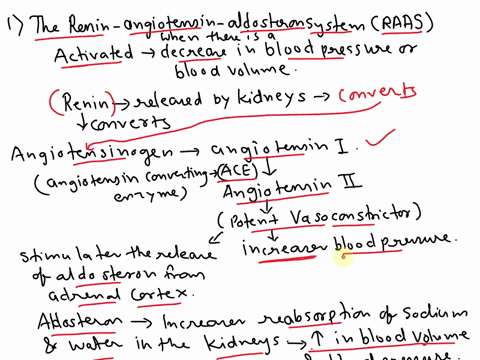 1) The Renin-angiotensin-aldosteron system (RAAS)
when there is a
Activated → decrease in blood pressure or
blood volume.
(Renin) → released by kidneys → converts
↓ converts
Angiotensinogen → angiotensin I ✓
(angiotensin converting → ACE) ↓
enzyme) Angiotensin II
(Potent Vasoconstrictor)
increases blood pressure.
stimulates the release
of aldosteron from
adrenal cortex.
Aldosteron → Increases reabsorption of sodium
& water in the kidneys → ↑ in blood volume